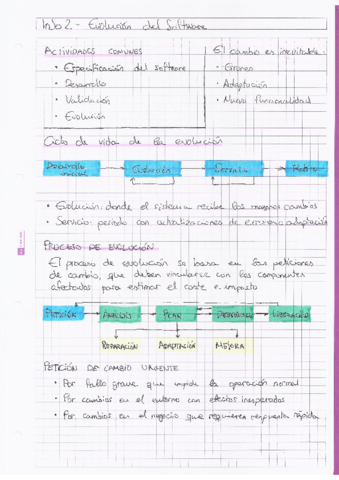 2.- Evolución del Software
ACTIVIDADES COMUNES
• Especificación del software
• Desarrollo
• Validación
• Evolución
El cambio es inevitable:
• Errores
• Adaptación
• Nueva funcionalidad
Ciclo de vida de la evolución
Desarrollo
Evolución
• Evolución: donde el sistema recibe los mayores cambios
• Servicio: periodo con actualizaciones de adaptación
PROCESO DE EVOLUCIÓN
El proceso de evolución se basa en las peticiones
de cambio, que deben vincularse con los componentes
afectados para estimar el coste e impacto
PETICIÓN
ANÁLISIS
REPARACIÓN ADAPTACIÓN MEJORA
PETICIÓN DE CAMBIO URGENTE
• Por fallo grave que impide la operación normal
• Por cambios en el entorno con efectos inesperados
• Por cambios en el negocio que requieren respuesta rápida